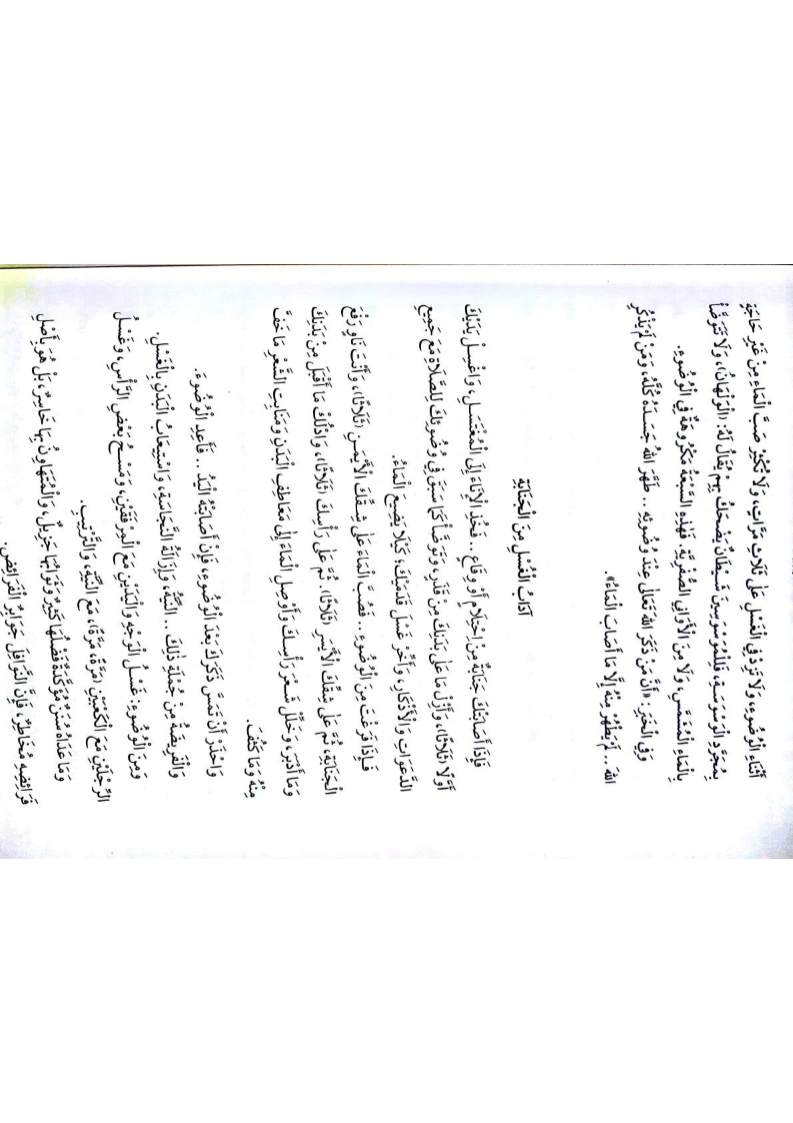 أَثْنَاءِ الْوُضُوءِ، وَلَا تَزِدْ فِي الْغَسْلِ عَلَى ثَلَاثِ مَرَّاتٍ، وَلَا تُكْثِرْ صَبَّ الْمَاءِ مِنْ غَيْرِ حَاجَةٍ
بِمُجَرَّدِ الْوَسْوَسَةِ، فَلِلْمُوَسْوِسِينَ شَيْطَانٌ يَضْحَكُ بِهِمْ يُقَالُ لَهُ: (الْوَلْهَانُ)، وَلَا تَتَوَضَّأْ
بِالْمَاءِ الْمُشَمَّسِ، وَلَا مِنَ الْأَوَانِي الصُّفْرِيَّةِ. فَهٰذِهِ السَّبْعَةُ مَكْرُوهَةٌ فِي الْوُضُوءِ.
وَفِي الْخَبَرِ: «أَنَّ مَنْ ذَكَرَ اللهَ تَعَالَى عِنْدَ وُضُوئِهِ .. طَهَّرَ اللهُ جَسَدَهُ كُلَّهُ، وَمَنْ لَمْ يَذْكُرِ
اللهَ .. لَمْ يَطْهُرْ مِنْهُ إِلَّا مَا أَصَابَ الْمَاءُ».
آدَابُ الْغُسْلِ مِنَ الْجَنَابَةِ
فَإِذَا أَصَابَتْكَ جَنَابَةٌ مِنْ اِحْتِلَامٍ أَوْ وِقَاعٍ .. فَخُذِ الْإِنَاءَ إِلَى الْمُغْتَسَلِ، وَاغْسِلْ يَدَيْكَ
أَوَّلًا (ثَلَاثًا)، وَأَزِلْ مَا عَلَى بَدَنِكَ مِنْ قَذَرٍ، وَتَوَضَّأْ كَمَا سَبَقَ فِي وُضُوئِكَ لِلصَّلَاةِ مَعَ جَمِيعِ
الدَّعَوَاتِ وَالْأَذْكَارِ، وَأَخِّرْ غَسْلَ قَدَمَيْكَ، كَيْلَا يَضِيعَ الْمَاءُ.
فَإِذَا فَرَغْتَ مِنَ الْوُضُوءِ .. فَصُبَّ الْمَاءَ عَلَى شِقِّكَ الْأَيْمَنِ (ثَلَاثًا)، وَأَنْتَ نَاوٍ رَفْعَ
الْجَنَابَةِ، ثُمَّ عَلَى شِقِّكَ الْأَيْسَرِ (ثَلَاثًا)، ثُمَّ عَلَى رَأْسِكَ (ثَلَاثًا)، وَادْلُكْ مَا أَقْبَلَ مِنْ بَدَنِكَ
وَمَا أَدْبَرَ، وَخَلِّلْ شَعْرَ رَأْسِكَ وَأَوْصِلِ الْمَاءَ إِلَى مَعَاطِفِ الْبَدَنِ وَمَنَابِتِ الشَّعْرِ مَا خَفَّ
مِنْهُ وَمَا كَثُفَ.
وَاحْذَرْ أَنْ تَمَسَّ ذَكَرَكَ بَعْدَ الْوُضُوءِ، فَإِنْ أَصَابَتْهُ الْيَدُ .. فَأَعِدِ الْوُضُوءَ.
وَالْفَرِيضَةُ مِنْ جُمْلَةِ ذٰلِكَ .. النِّيَّةُ، وَإِزَالَةُ النَّجَاسَةِ، وَاسْتِيعَابُ الْبَدَنِ بِالْغَسْلِ.
وَمِنَ الْوُضُوءِ: غَسْلُ الْوَجْهِ وَالْيَدَيْنِ مَعَ الْمِرْفَقَيْنِ، وَمَسْحُ بَعْضِ الرَّأْسِ، وَغَسْلُ
الرِّجْلَيْنِ مَعَ الْكَعْبَيْنِ (مَرَّةً، مَرَّةً)، مَعَ النِّيَّةِ، وَالتَّرْتِيبِ.
وَمَا عَدَاهُ سُنَنٌ مُؤَكَّدَةٌ فَضْلُهَا كَبِيرٌ وَثَوَابُهَا جَزِيلٌ، وَالْمُتَهَاوِنُ بِهَا خَاسِرٌ، بَلْ هُوَ بِأَصْلِ
فَرَائِضِهِ مُخَاطِرٌ، فَإِنَّ النَّوَافِلَ جَوَابِرُ الْفَرَائِضِ.